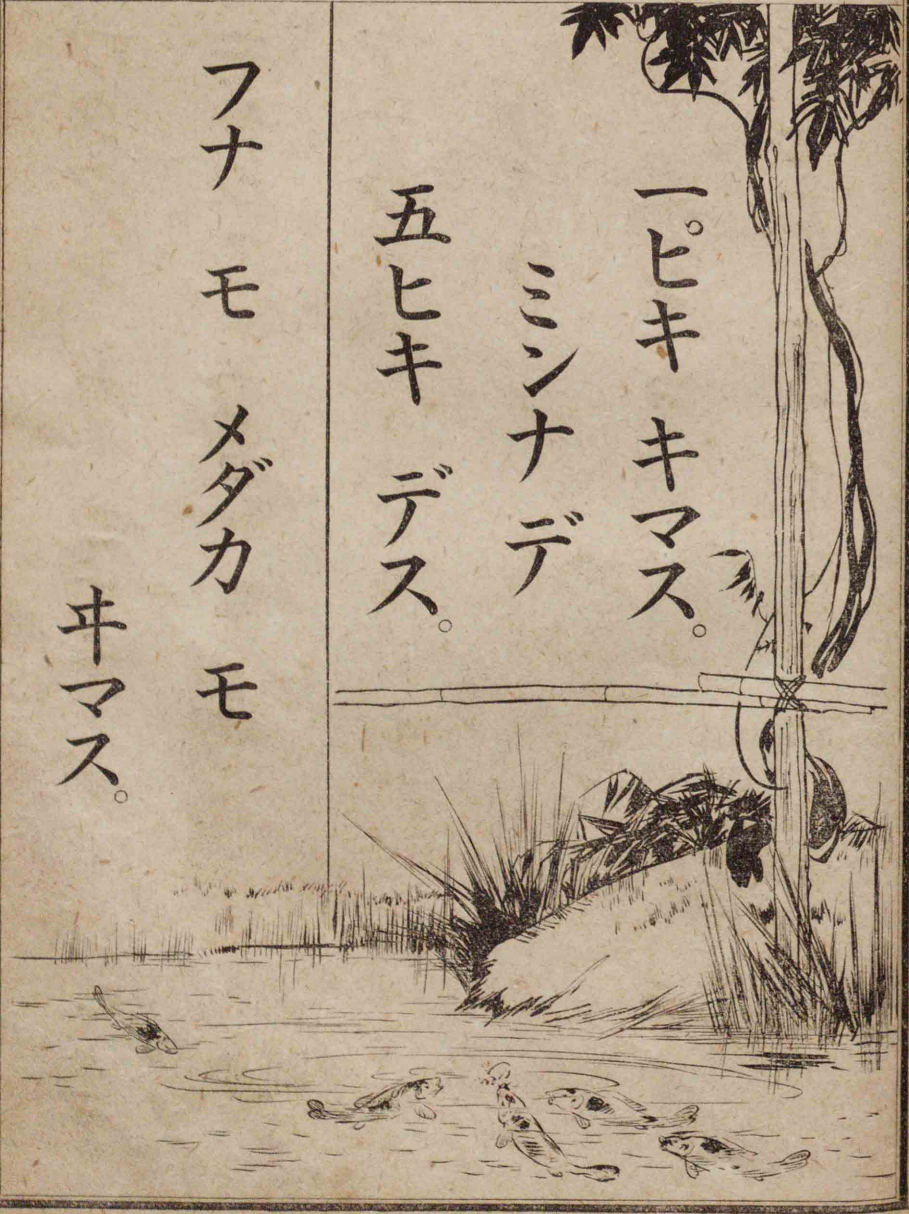 一ピキ キマス。
ミンナ デ
五ヒキ デス。
フナ モ メダカ モ
ヰマス。